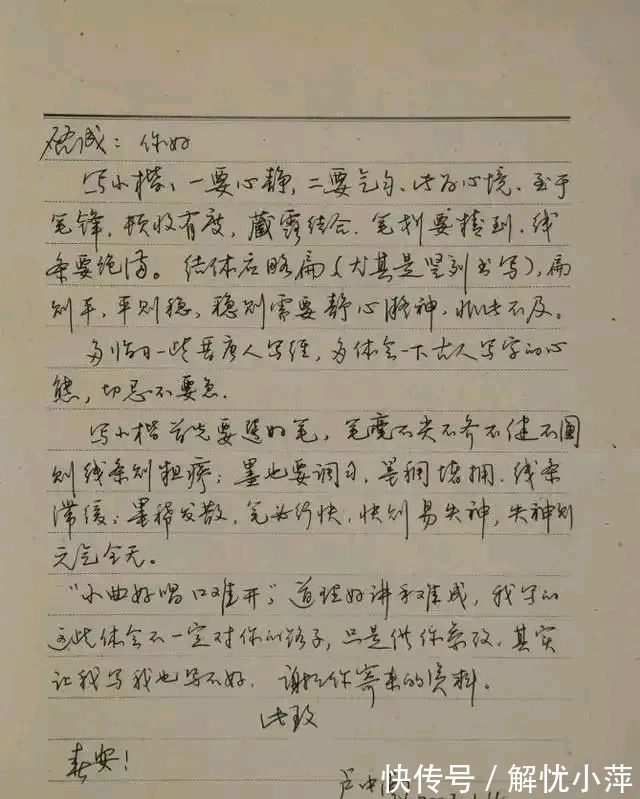 你好
写小楷，一要心静，二要气匀，此为心境，至于
笔锋，顿收有度，藏露结合，笔划要精到，线
条要饱满。结体应略扁（尤其是竖列书写），扁
则平，平则稳，稳则需要静心凝神，非此不及。
多临习一些晋唐人写经，多体会一下古人写字的心
态，切忌不要急。
写小楷首先要选好笔，笔瘦不尖不齐不健不圆
则线条则粗疏；墨也要调匀，墨稠堵拥，线条
滞缓；墨稀发散，笔必行快，快则易失神，失神则
元气全无。
“小曲好唱口难开”，道理好讲手难成，我写的
这些体会不一定对你的路子，只是供你参考，其实
让我写我也写不好，谢谢你寄来的资料。
此致
春安！
卢中
快传号／解忧小萍